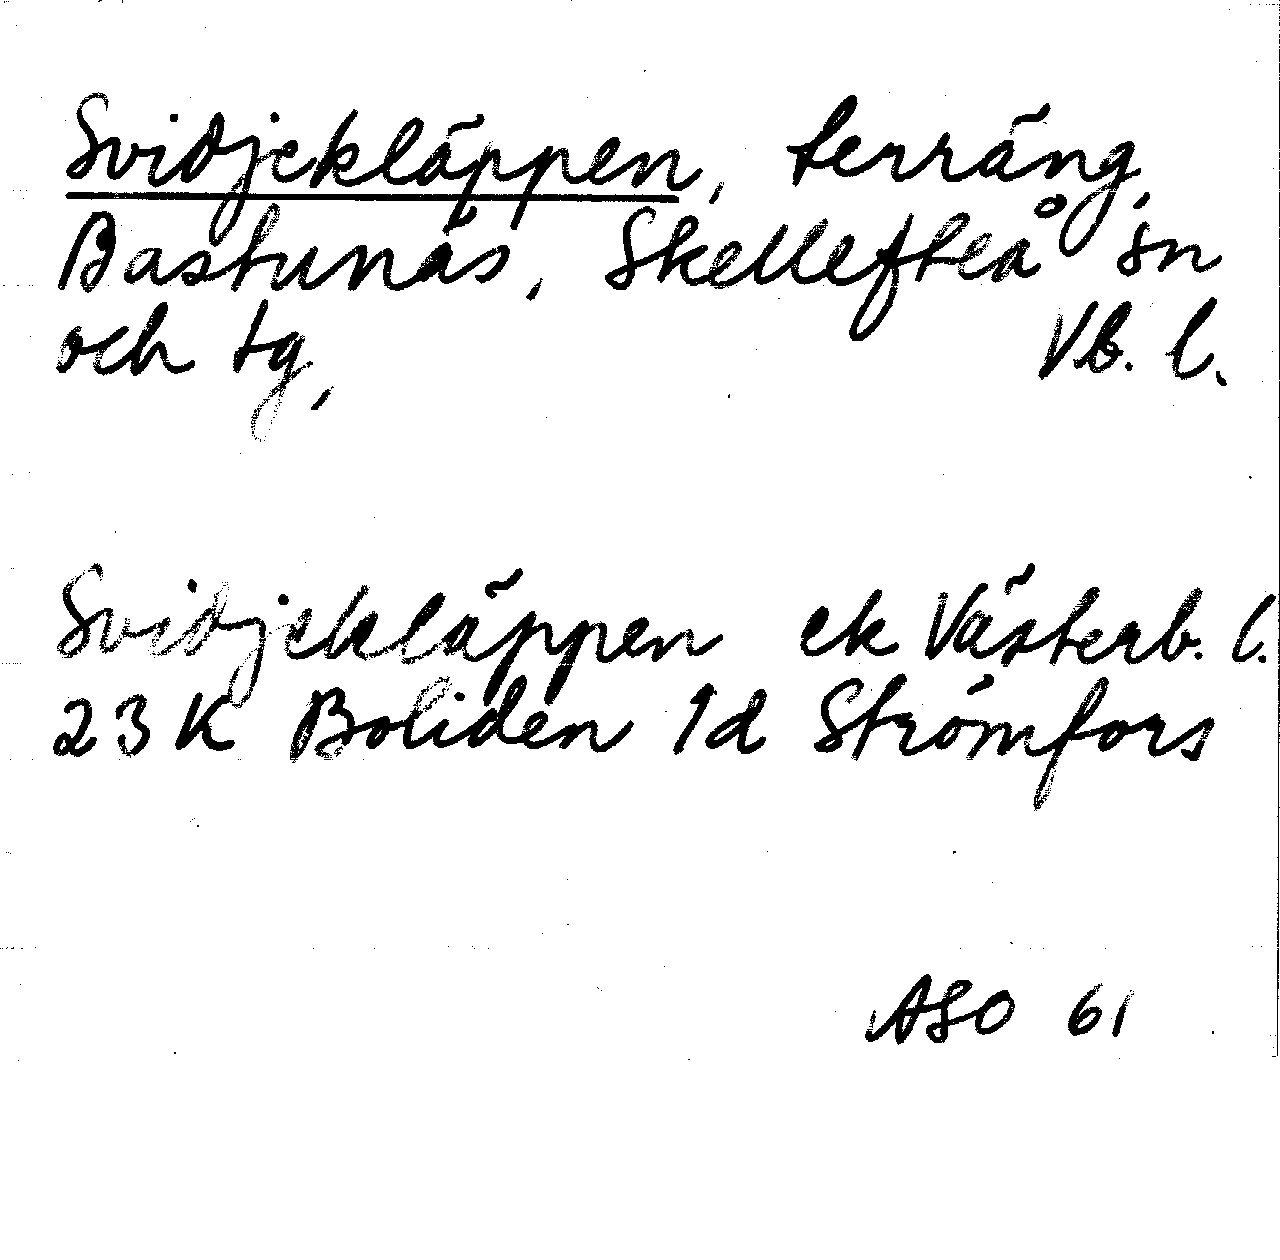 Svidjekläppen, terräng,
Bastunäs, Skellefteå sn
och tg, Vb. l.
Svidjekläppen ek Västerb. l.
23 K Boliden 1d Strömfors
ASO 61